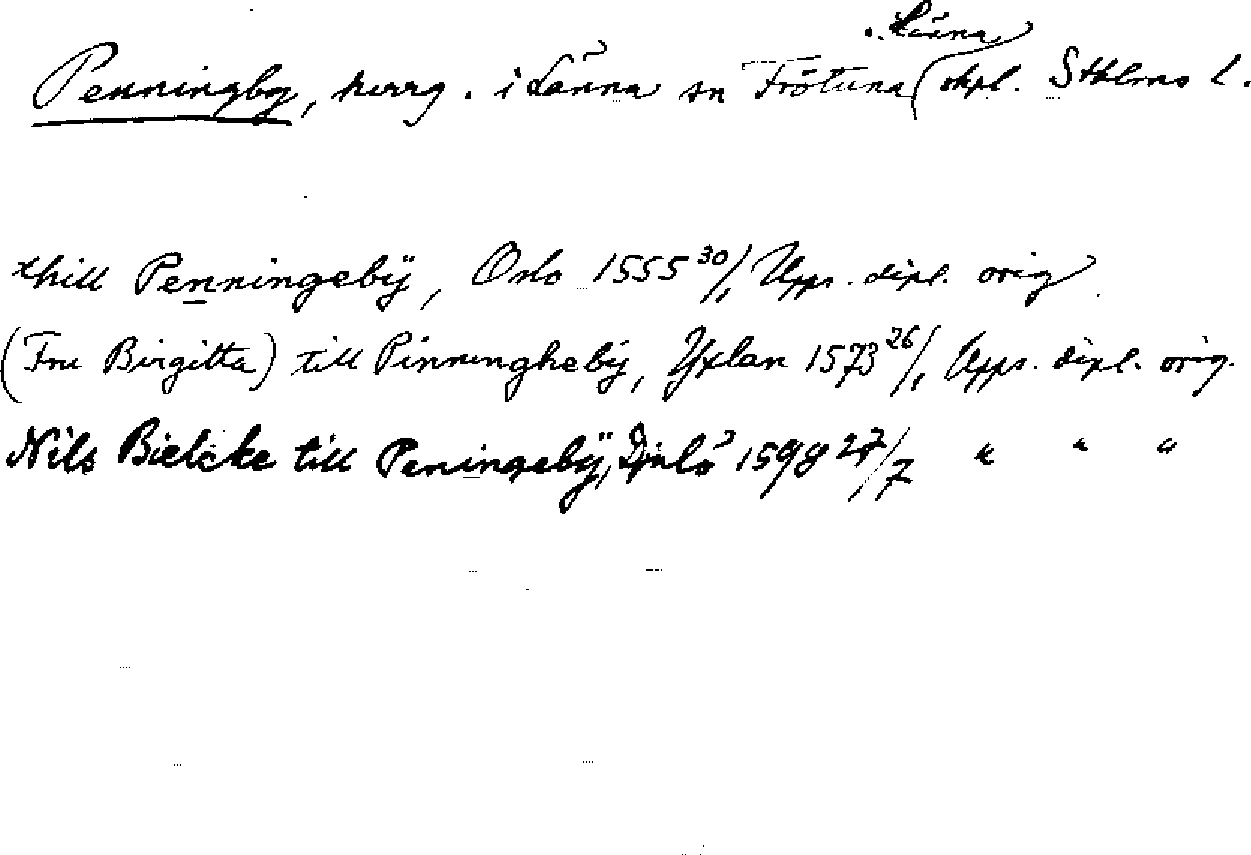 Penningby, herrg. i Länna sn Frötuna o. Länna skpl. Sthlms l.
thill Penningebÿ, Orlo 1555 30/1 Upps. dipl. orig
(Fru Birgitta) till Pinninghebÿ, Yxlan 1573 26/1 Upps. dipl. orig.
Nils Bielcke till Peningebÿ, 1598 27/7 " " "